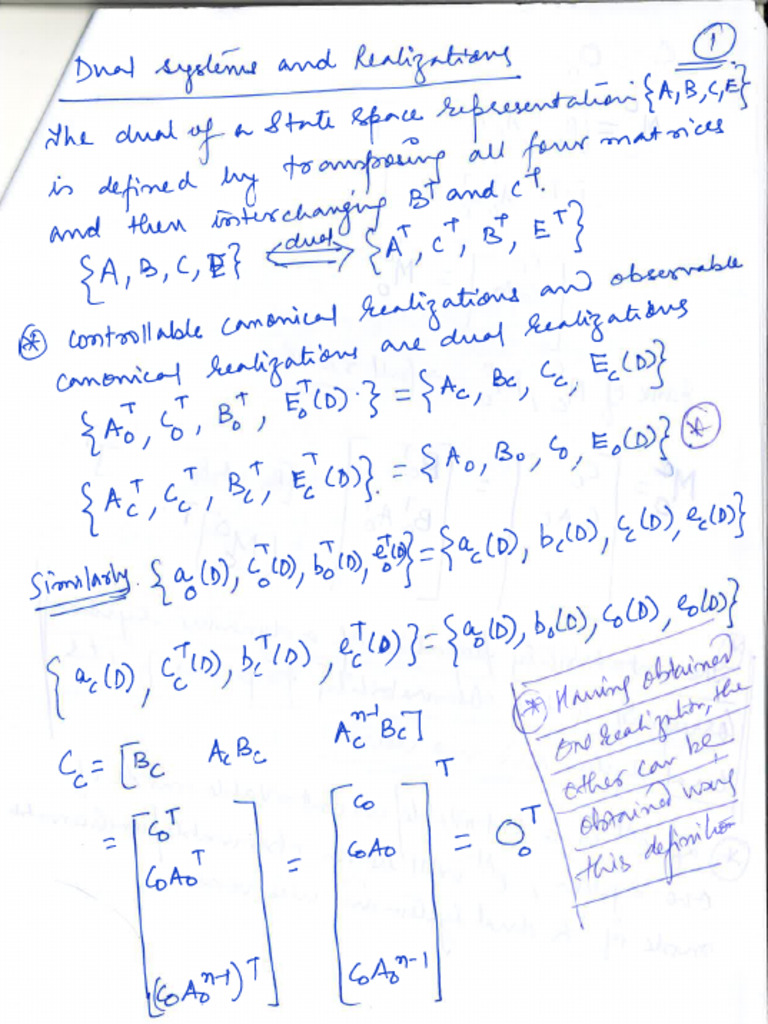 1
Dual systems and Realizations
The dual of a State space representation {A, B, C, E}
is defined by transposing all four matrices
and then interchanging Bᵀ and Cᵀ.
{A, B, C, E} ⟸dual⟹ {Aᵀ, Cᵀ, Bᵀ, Eᵀ}
* Controllable canonical realizations and observable
canonical realizations are dual realizations
{A₀ᵀ, C₀ᵀ, B₀ᵀ, E₀ᵀ(D)} = {A_c, B_c, C_c, E_c(D)}
{A_cᵀ, C_cᵀ, B_cᵀ, E_cᵀ(D)}. = {A₀, B₀, C₀, E₀(D)} *
Similarly. {a₀(D), C₀ᵀ(D), b₀ᵀ(D), e₀ᵀ(D)} = {a_c(D), b_c(D), c_c(D), e_c(D)}
{a_c(D), C_cᵀ(D), b_cᵀ(D), e_cᵀ(D)} = {a₀(D), b₀(D), c₀(D), e₀(D)}
* Having obtained
one realization, the
other can be
obtained using
this definition
C_c = [B_c A_c B_c A_cⁿ⁻¹ B_c]
= [C₀ᵀ
C₀A₀ᵀ
(C₀A₀ⁿ⁻¹)ᵀ]
= [C₀
C₀A₀
C₀A₀ⁿ⁻¹]ᵀ
= O₀ᵀ